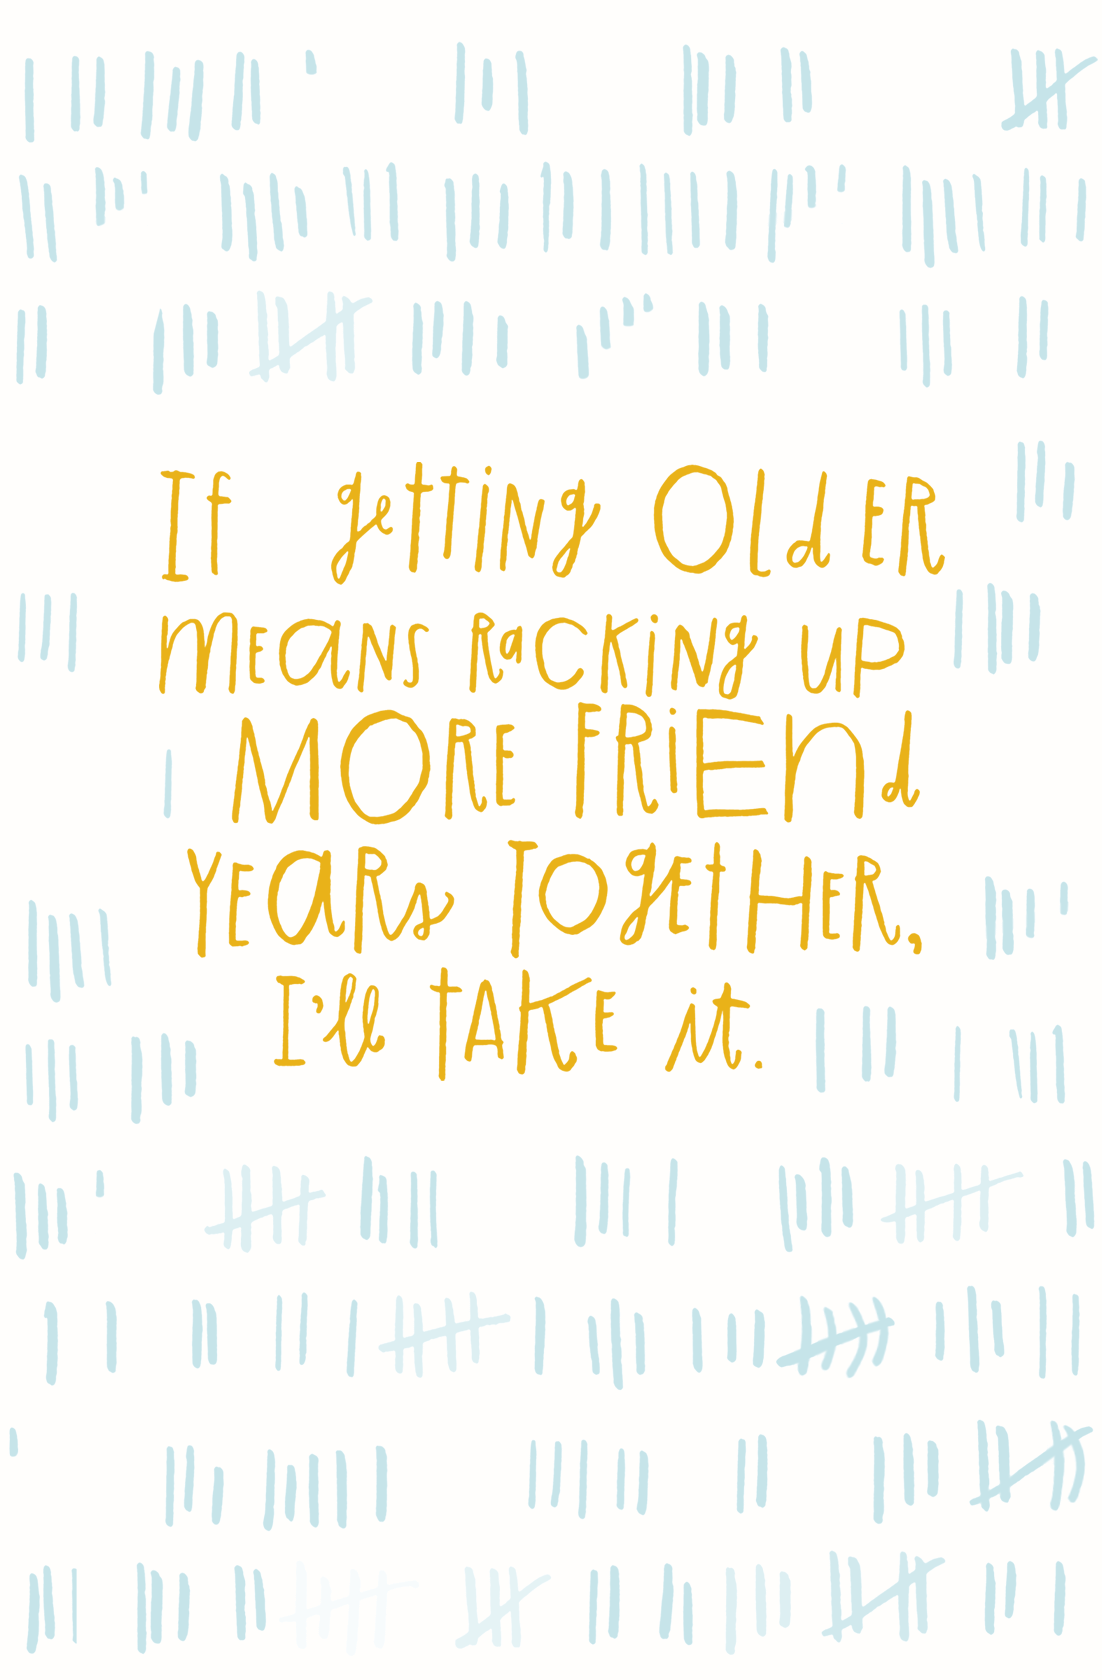 If getting OLdER
mEaNS RaCKiNg UP
MORE FRiEnd
YEaRs TOgEtHER,
I'll tAKE it.